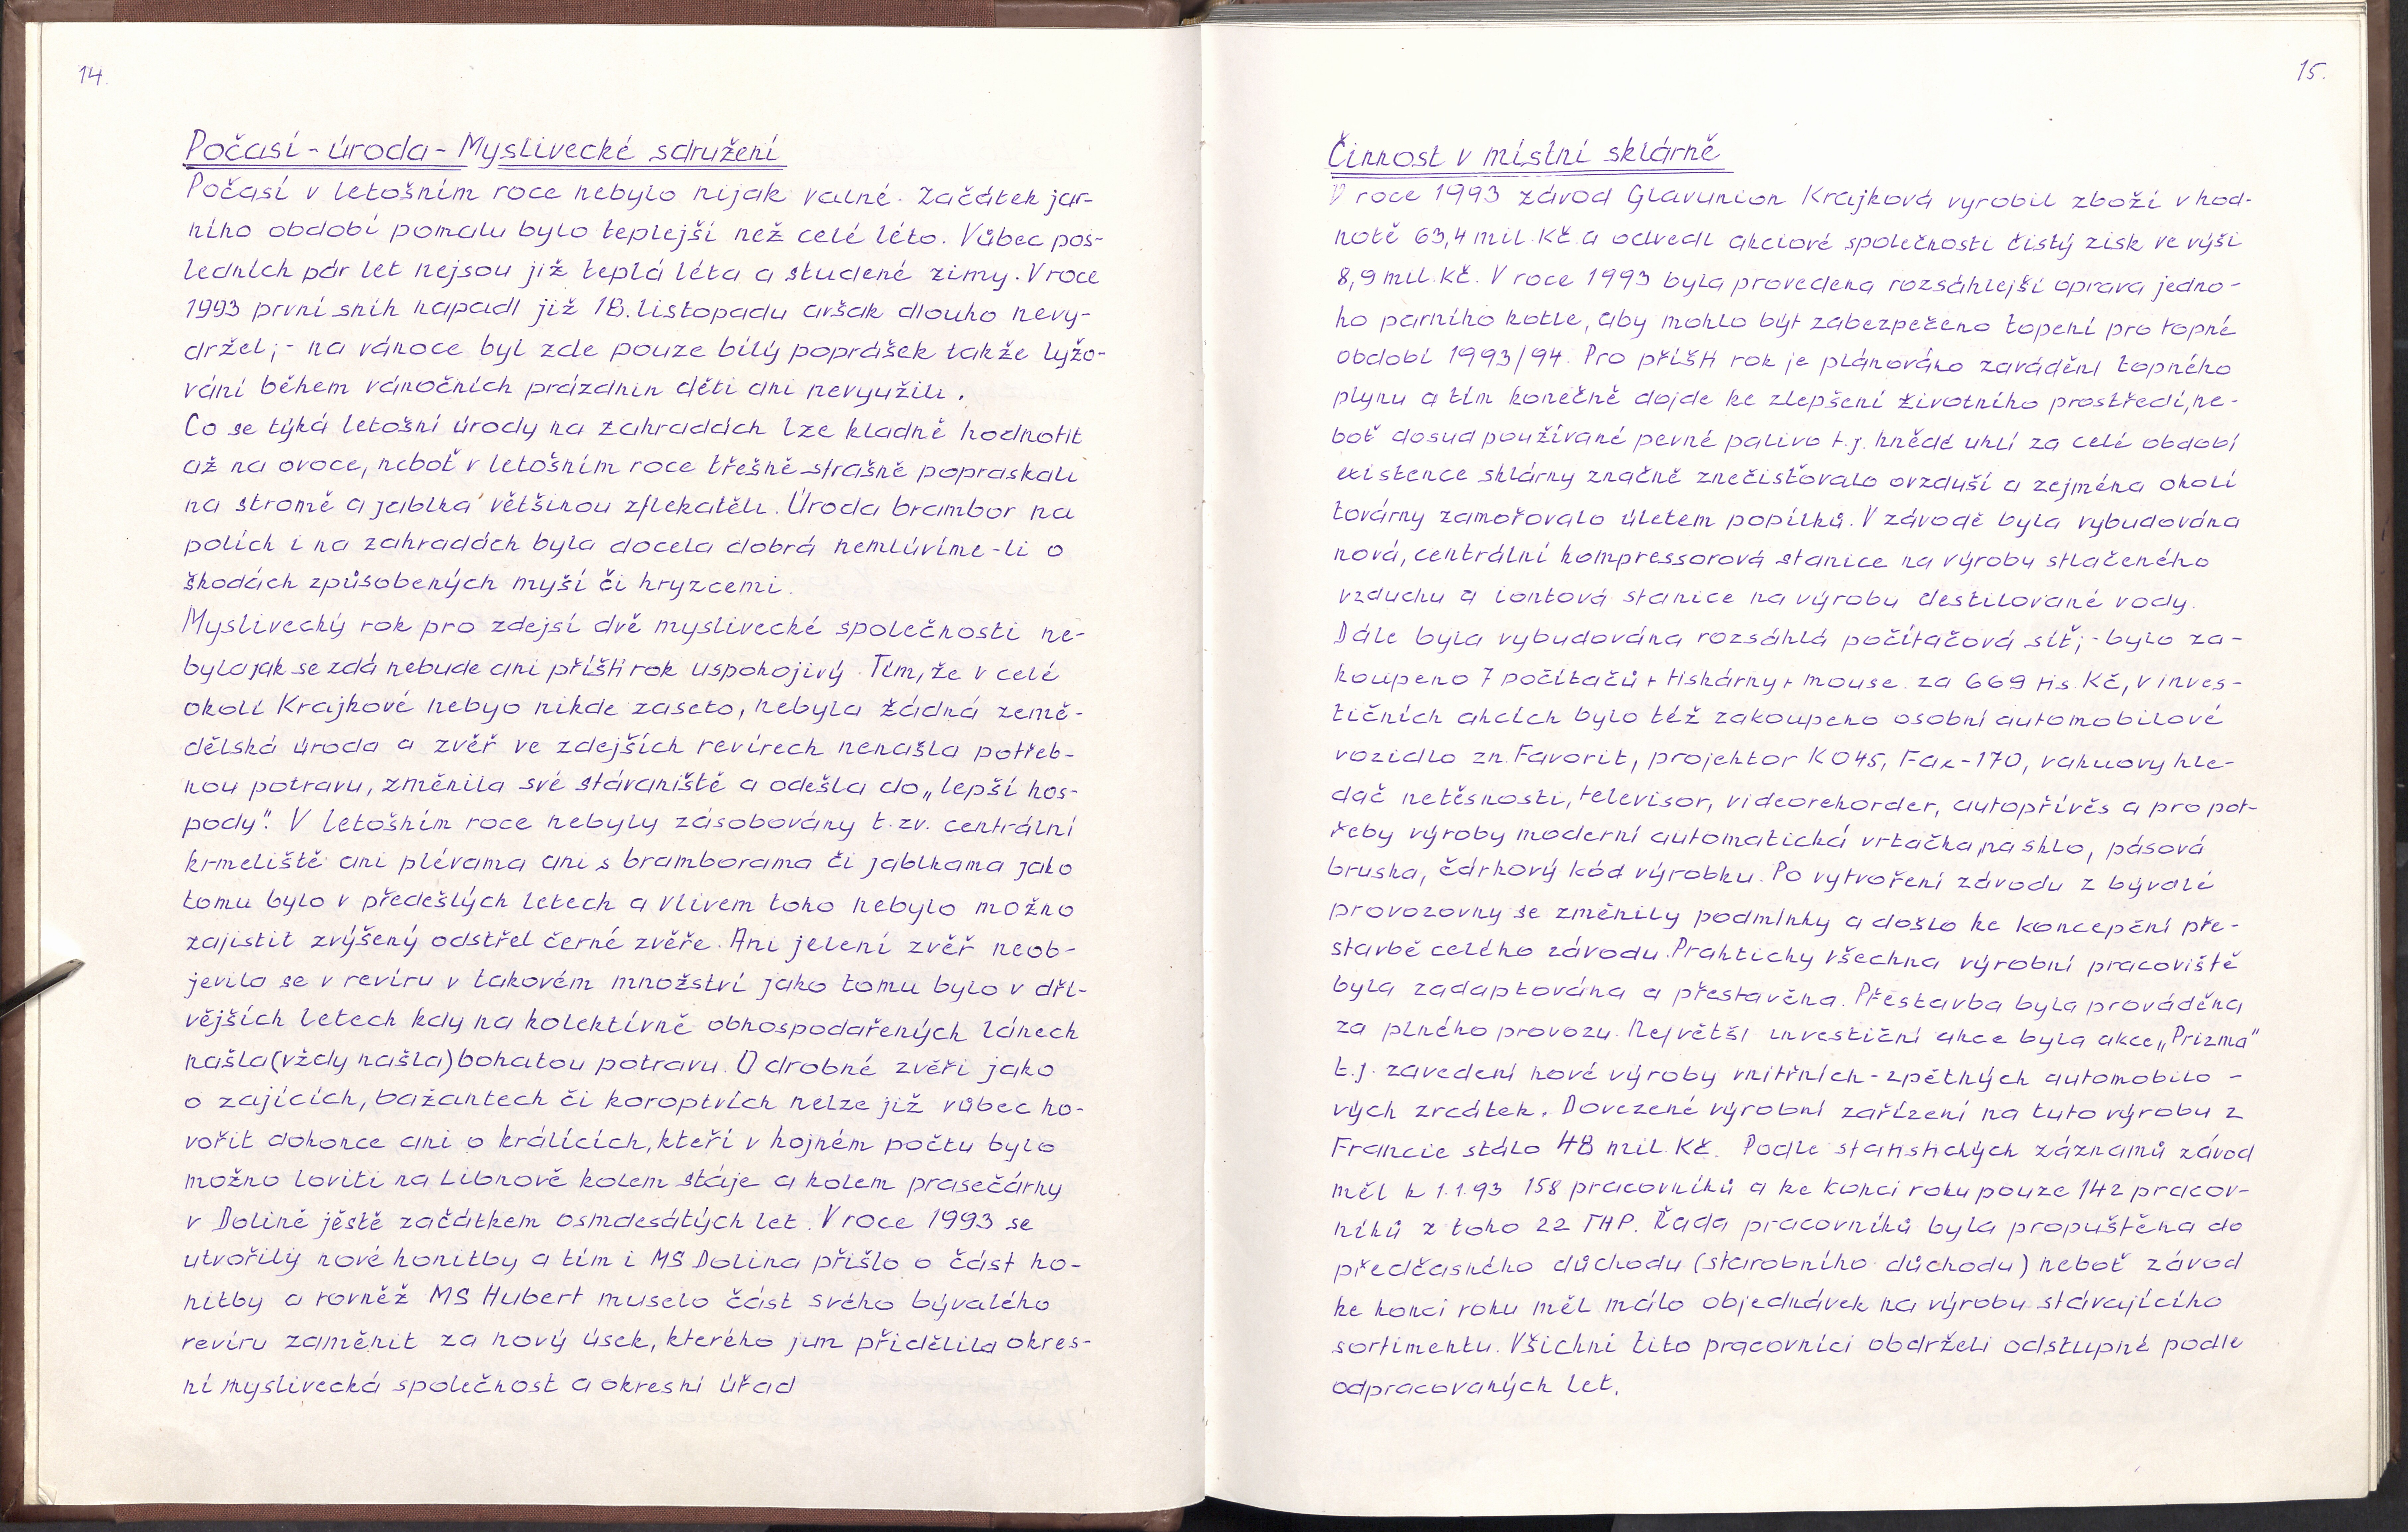 14.
Počasí - úroda - Myslivecké sdružení
Počasí v letošním roce nebylo nijak valné. Začátek jar-
ního období pomalu bylo teplejší než celé léto. Vůbec pos-
ledních pár let nejsou již teplá léta a studené zimy. V roce
1993 první sníh napadl již 18. listopadu avšak dlouho nevy-
držel;- na vánoce byl zde pouze bílý poprášek takže lyžo-
vání během vánočních prázdnin děti ani nevyužili.
Co se týká letošní úrody na zahradách lze kladně hodnotit
až na ovoce, neboť v letošním roce třešně strašně popraskali
na stromě a jablka většinou zflekatěli. Úroda brambor na
polích i na zahradách byla docela dobrá nemlúvíme-li o
škodách způsobených myší či hryzcemi.
Myslivecký rok pro zdejsí dvě myslivecké společnosti ne-
bylo jak se zdá nebude ani příští rok uspokojivý. Tím, že v celé
okolí Krajkové nebyo nikde zaseto, nebyla žádná země-
dělská úroda a zvěř ve zdejších revírech nenašla potřeb-
nou potravu, změnila své stávaniště a odešla do „lepší hos-
pody". V letošním roce nebyly zásobovány t.zv. centrální
krmeliště ani plévama ani s bramborama či jablkama jako
tomu bylo v předešlých letech a vlivem toho nebylo možno
zajistit zvýšený odstřel černé zvěře. Ani jelení zvěř neob-
jevila se v revíru v takovém množství jako tomu bylo v dří-
vějších letech kdy na kolektívně obhospodařených lánech
našla (vždy našla) bohatou potravu. O drobné zvěři jako
o zajících, bažantech či koroptvích nelze již vůbec ho-
vořit dokonce ani o králících, kteří v hojném počtu bylo
možno loviti na Libnově kolem stáje a kolem prasečárny
v Dolině jěstě začátkem osmdesátých let. V roce 1993 se
utvořily nové honitby a tím i MS Dolina přišlo o část ho-
nitby a rovněž MS Hubert muselo část svého bývalého
revíru zaměnit za nový úsek, kterého jim přidělila okres-
ní myslivecká společnost a okresní úřad
15.
Činnost v místní sklárně
V roce 1993 závod Glavunion Krajková vyrobil zboží v hod-
notě 63,4 mil. Kč. a odvedl akciové společnosti čistý zisk ve výši
8,9 mil. Kč. V roce 1993 byla provedena rozsáhlejší oprava jedno-
ho parního kotle, aby mohlo být zabezpečeno topení pro topné
období 1993/94. Pro příští rok je plánováno zavádění topného
plynu a tím konečně dojde ke zlepšení životního prostředí, ne-
boť dosud používané pevné palivo t.j. hnědé uhlí za celé období
existence sklárny značně znečisťovalo ovzduší a zejména okolí
továrny zamořovalo úletem popílků. V závodě byla vybudována
nová, centrální kompressorová stanice na výrobu stlačeného
vzduchu a iontová stanice na výrobu destilované vody.
Dále byla vybudována rozsáhlá počítačová síť;- bylo za-
koupeno 7 počítačů + tiskárny + mouse. za 669 tis. Kč, v inves-
tičních akcích bylo též zakoupeno osobní automobilové
vozidlo zn. Favorit, projektor KO45, Fax-170, vakuovy hle-
dač netěsnosti, televisor, videorekorder, autopřívěs a pro pot-
řeby výroby moderní automatická vrtačka na sklo, pásová
bruska, čárkový kód výrobku. Po vytvoření závodu z bývalé
provozovny se změnily podmínky a došlo ke koncepční pře-
stavbě celého závodu. Prakticky všechna výrobní pracoviště
byla zadaptována a přestavěna. Přestavba byla prováděna
za plného provozu. Největší investiční akce byla akce „Prizma"
t.j. zavedení nové výroby vnitřních-zpětných automobilo-
vých zrcátek. Dovezené výrobní zařízení na tuto výrobu z
Francie stálo 48 mil. Kč. Podle statistických záznamů závod
měl k 1.1.93 158 pracovníků a ke konci roku pouze 142 pracov-
níků z toho 22 THP. Řada pracovníků byla propuštěna do
předčasného důchodu (starobního důchodu) neboť závod
ke konci roku měl málo objednávek na výrobu stávajícího
sortimentu. Všichni tito pracovníci obdrželi odstupné podle
odpracovaných let.